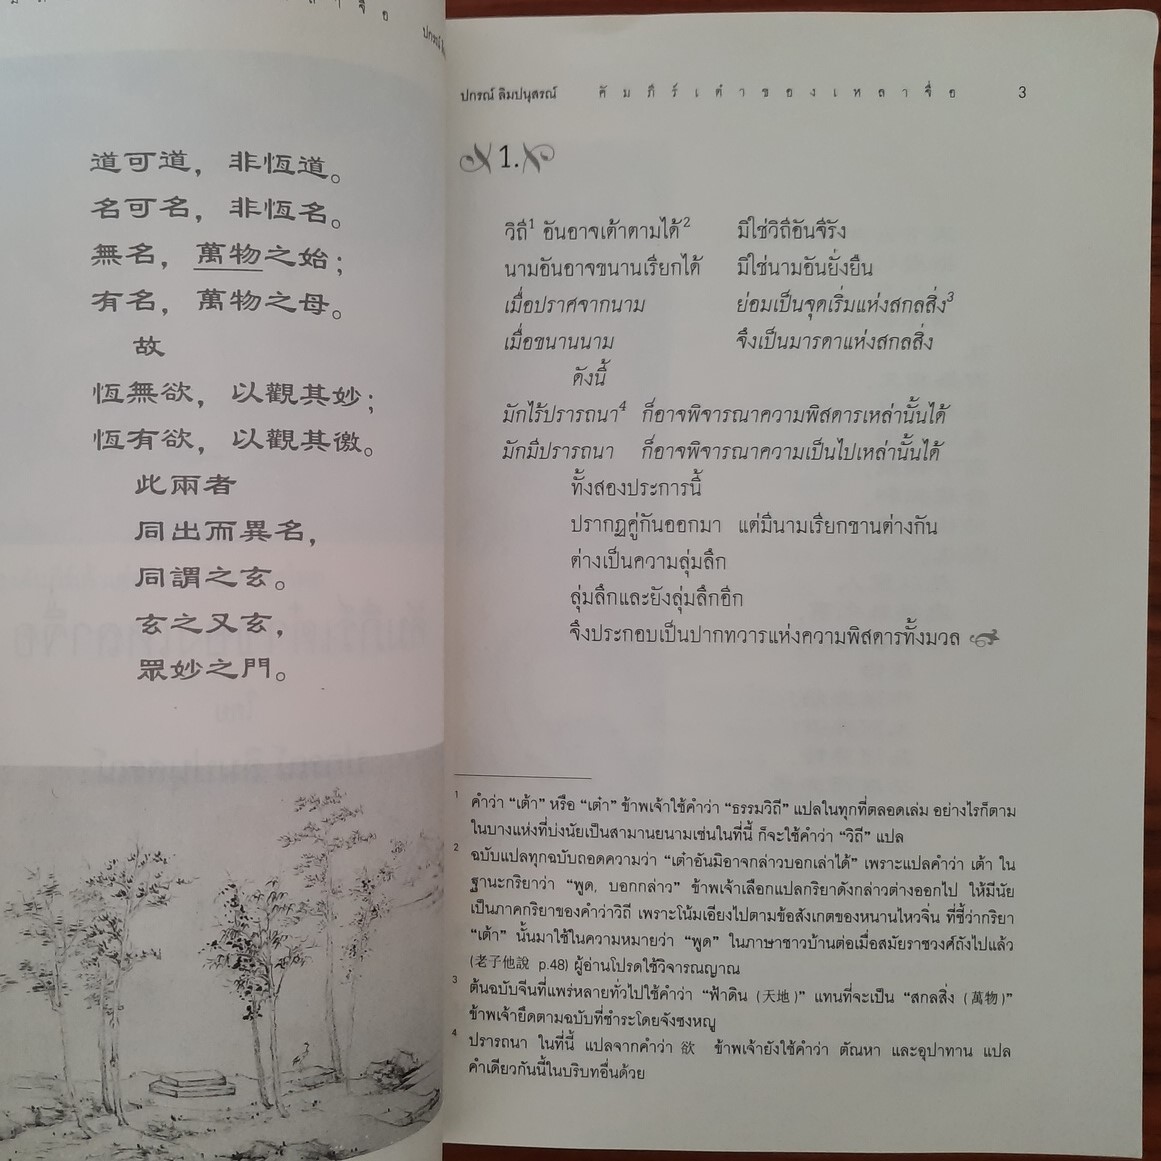 道可道，非恆道。
名可名，非恆名。
無名，萬物之始；
有名，萬物之母。
故
恆無欲，以觀其妙；
恆有欲，以觀其徼。
此兩者
同出而異名，
同謂之玄。
玄之又玄，
眾妙之門。
ปกรณ์ ลิมปนุสรณ์ คัมภีร์เต๋าของเหลาจื่อ 3
1.
วิถี1 อันอาจเต้าตามได้2 มิใช่วิถีอันจีรัง
นามอันอาจขนานเรียกได้ มิใช่นามอันยั่งยืน
เมื่อปราศจากนาม ย่อมเป็นจุดเริ่มแห่งสกลสิ่ง3
เมื่อขนานนาม จึงเป็นมารดาแห่งสกลสิ่ง
ดังนี้
มักไร้ปรารถนา4 ก็อาจพิจารณาความพิสดารเหล่านั้นได้
มักมีปรารถนา ก็อาจพิจารณาความเป็นไปเหล่านั้นได้
ทั้งสองประการนี้
ปรากฏคู่กันออกมา แต่มีนามเรียกขานต่างกัน
ต่างเป็นความลุ่มลึก
ลุ่มลึกและยังลุ่มลึกอีก
จึงประกอบเป็นปากทวารแห่งความพิสดารทั้งมวล
1 คำว่า “เต้า” หรือ “เต๋า” ข้าพเจ้าใช้คำว่า “ธรรมวิถี” แปลในทุกที่ตลอดเล่ม อย่างไรก็ตาม
ในบางแห่งที่บ่งนัยเป็นสามานยนามเช่นในที่นี้ ก็จะใช้คำว่า “วิถี” แปล
2 ฉบับแปลทุกฉบับถอดความว่า “เต๋าอันมิอาจกล่าวบอกเล่าได้” เพราะแปลคำว่า เต้า ใน
ฐานะกริยาว่า “พูด, บอกกล่าว” ข้าพเจ้าเลือกแปลกริยาดังกล่าวต่างออกไป ให้มีนัย
เป็นภาคกริยาของคำว่าวิถี เพราะโน้มเอียงไปตามข้อสังเกตของหนานไหวจิ่น ที่ชี้ว่ากริยา
“เต้า” นั้นมาใช้ในความหมายว่า “พูด” ในภาษาชาวบ้านต่อเมื่อสมัยราชวงศ์ถังไปแล้ว
(老子他說 p.48) ผู้อ่านโปรดใช้วิจารณญาณ
3 ต้นฉบับจีนที่แพร่หลายทั่วไปใช้คำว่า “ฟ้าดิน (天地)” แทนที่จะเป็น “สกลสิ่ง (萬物)”
ข้าพเจ้ายึดตามฉบับที่ชำระโดยจังซงหญู
4 ปรารถนา ในที่นี้ แปลจากคำว่า 欲 ข้าพเจ้ายังใช้คำว่า ตัณหา และอุปาทาน แปล
คำเดียวกันนี้ในบริบทอื่นด้วย